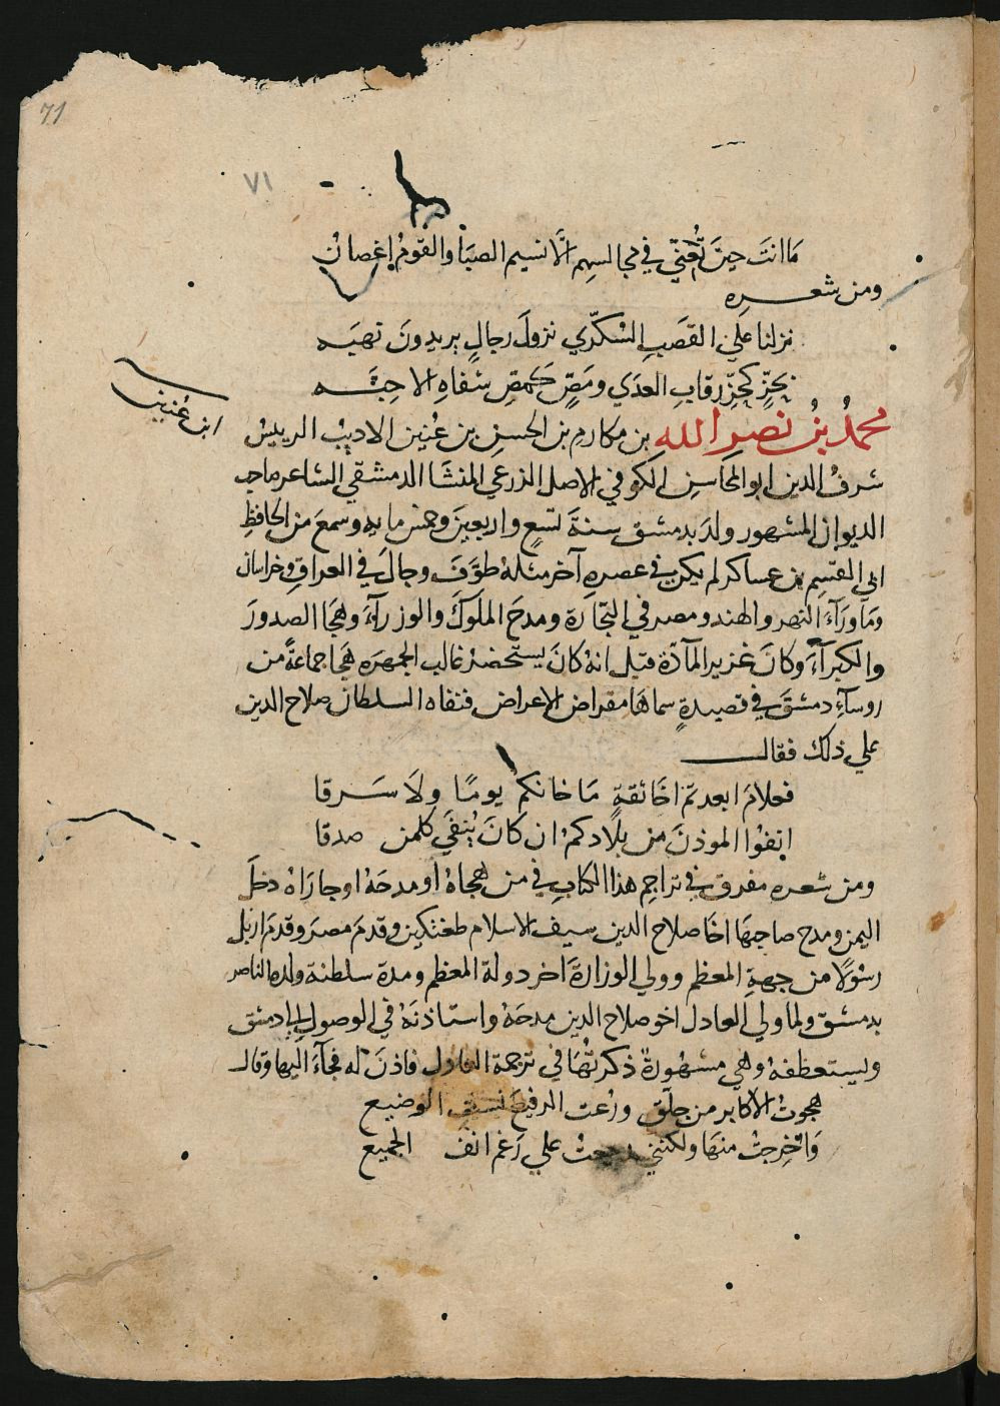 71
٧١
مَا انتَ حينَ تُغنّي في مجالسِهِم الّا نسيم الصبَا والقومُ اغصانُ
ومن شعره
نزلنا علَي القصَبِ السُكّري نزولَ رجالٍ يريدونَ نهبَه
بحزٍّ كحزِّ رقابِ العدَي ومَصٍّ كمصِّ شفاهِ الاحبَّه
ابن عُنين
محمدُ بنُ نصرِ الله بن مكارم بن الحسن بن عُنين الاديبُ الرييس
شرفُ الدين ابو المحاسن الكوفي الاصل الزرعي المنشا الدمشقي الشاعر صاحب
الديوان المشهور ولدَ بدمشق سنةَ تسعٍ واربعينَ وخمس مايه وسمعَ من الحافظِ
ابي القسم بن عساكر لم يكن في عصره آخر مثلهُ طوَّفَ وجالَ في العراقِ وخراسان
ومَا ورَآءَ النهر والهند ومصر في التجارة ومدحَ الملوكَ والوزرآءَ وهجَا الصدورَ
والكبرآءَ وكانَ غزيرالمآدّة قيل انهُ كانَ يستحضرُ غالب الجمهرَه هجَا جماعةً من
روسآءِ دمشقَ في قصيدةٍ سماهَا مقراض الاعراض فنفاه السلطان صلاح الدين
علي ذلك فقال
فعلامَ ابعدتم اخَا ثقةٍ مَا خانكم يومًا ولَا سَرقا
انفُوا الموذنَ من بلادكم ان كانَ يُنفَي كلمن صدقا
ومن شعره مفرق في تراجم هذا الكتابِ في من هجاهُ او مدحَهُ او جارَاهُ دخلَ
اليمن ومدح صاحبهَا اخَا صلاح الدين سيف الاسلام طغتكين وقدمَ مصرَ وقدمَ اربل
رسُولًا من جهةِ المعظم وولي الوزارةَ اخر دولة المعظم ومدة سلطنة ولده الناصر
بدمشقَ ولما ولي العادل اخو صلاح الدين مدحَهُ واستاذنهُ في الوصول الي دمشق
ويستعطفهُ وهي مشهورةٌ ذكرتُهَا في ترجمة العادل فاذنَ له فجآءَ اليها وقال
هجوتُ الاكابر من جلّق ورُعت الرفيعَ بسبِّ الوضيع
وَاُخرجتُ منهَا ولكنني رجعتُ علي رَغم انف الجميع